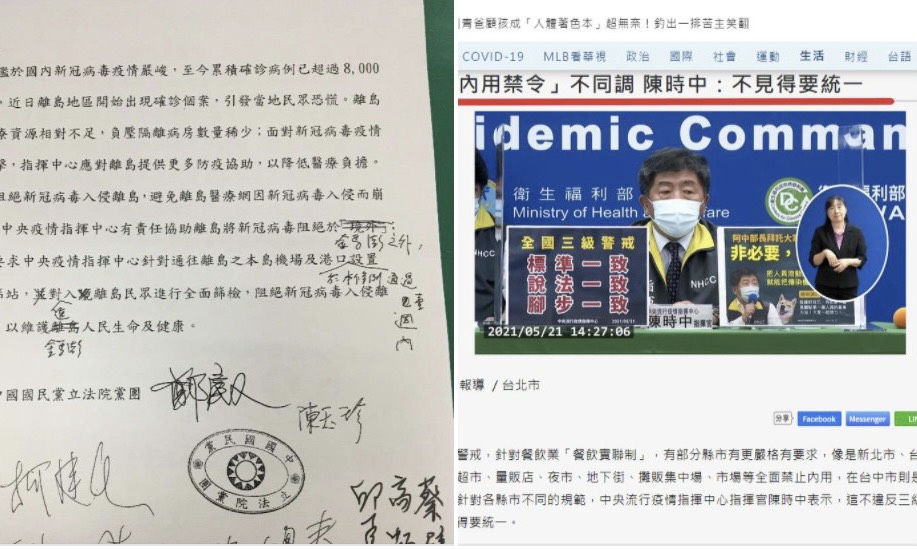 鑑於國內新冠病毒疫情嚴峻，至今累積確診病例已超過 8,000
，近日離島地區開始出現確診個案，引發當地民眾恐慌。離島
療資源相對不足，負壓隔離病房數量稀少；面對新冠病毒疫情
擊，指揮中心應對離島提供更多防疫協助，以降低醫療負擔。
阻絕新冠病毒入侵離島，避免離島醫療網因新冠病毒入侵而崩
中央疫情指揮中心有責任協助離島將新冠病毒阻絕於境外；
金馬澎之外，
要求中央疫情指揮中心針對通往離島之本島機場及港口設置
於本條例通過
站，對入離島民眾進行全面篩檢，阻絕新冠病毒入侵離
進
週內
以維護離島人民生命及健康。
金馬澎
中國國民黨立法院黨團
陳玉珍
中國國民黨
立法院黨團
青爸顧孩成「人體著色本」超無奈！釣出一排苦主笑翻
COVID-19 MLB看華視 政治 國際 社會 運動 生活 財經 台語
內用禁令」不同調 陳時中：不見得要統一
idemic Comman
衛生福利部
Ministry of Health
fare
衛
利部
全國三級警戒
標準一致
說法一致
腳步一致
中央流行疫情指揮中心
2021/05/21
NHCC
陳時中 指揮官
阿中部長拜托大
非必要，
把人員流動
就能把傳染
2021/05/21 14:27:06
報導 / 台北市
分享 Facebook Messenger LIN
警戒，針對餐飲業「餐飲實聯制」，有部分縣市有更嚴格有要求，像是新北市、台
超市、量販店、夜市、地下街、攤販集中場、市場等全面禁止內用，在台中市則是
針對各縣市不同的規範，中央流行疫情指揮中心指揮官陳時中表示，這不違反三級
得要統一。